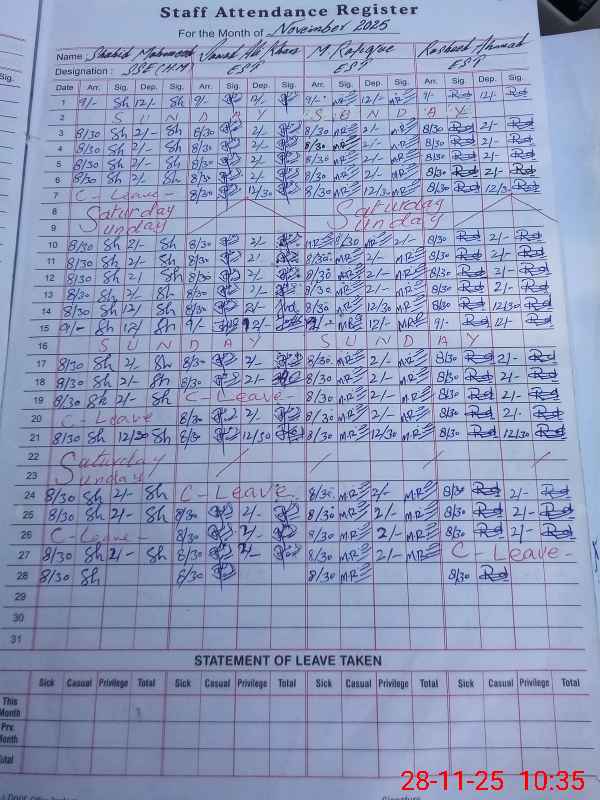 Staff Attendance Register
For the Month of November 2025
Name Shahid Mehmood Ali Khan M Rafique Rasheed Ahmad
Designation: SSE(H.M) EST EST EST
Sig. Date Arr. Sig. Dep. Sig. Arr. Sig. Dep. Sig. Arr. Sig. Dep. Sig. Arr. Sig. Dep. Sig.
1 9/- Sh 12/- Sh 9/- 12/- 9/- MR 12/- MR 9/- 12/-
2 S U N D A Y S U N D A Y
3 8/30 Sh 2/- Sh 8/30 2/- 8/30 MR 2/- MR 8/30 2/-
4 8/30 Sh 2/- Sh 8/30 2/- 8/30 MR 2/- MR 8/30 2/-
5 8/30 Sh 2/- Sh 8/30 2/- 8/30 MR 2/- MR 8/30 2/-
6 8/30 Sh 2/- Sh 8/30 2/- 8/30 MR 2/- MR 8/30 2/-
7 C - Leave 8/30 12/30 8/30 MR 12/30 MR 8/30 12/30
8 Saturday Saturday
9 Sunday Sunday
10 8/30 Sh 2/- Sh 8/30 2/- MR 8/30 MR 2/- 8/30 2/-
11 8/30 Sh 2/- Sh 8/30 2/- 8/30 MR 2/- MR 8/30 2/-
12 8/30 Sh 2/ Sh 8/30 2/- 8/30 MR 2/- MR 8/30 2/-
13 8/30 Sh 2/- Sh 8/30 2/- 8/30 MR 2/- MR 8/30 2/-
14 8/30 Sh 12/ Sh 8/30 2/- 8/30 MR 12/30 MR 8/30 12/30
15 9/- Sh 12/ Sh 9/- 12/- 9/- MR 12/- MR 9/- 12/-
16 S U N D A Y S U N D A Y
17 8/30 Sh 2/- Sh 8/30 2/- 8/30 MR 2/- MR 8/30 2/-
18 8/30 Sh 2/- Sh 8/30 2/- 8/30 MR 2/- MR 8/30 2/-
19 8/30 Sh 2/- Sh C - Leave - 8/30 MR 2/- MR 8/30 2/-
20 C - Leave 8/30 2/- 8/30 MR 2/- MR 8/30 2/-
21 8/30 Sh 12/30 Sh 8/30 12/30 8/30 MR 12/30 MR 8/30 12/30
22 Saturday
23 Sunday
24 8/30 Sh 2/- Sh C - Leave 8/30 MR 2/- MR 8/30 2/-
25 8/30 Sh 2/- Sh 8/30 2/- 8/30 MR 2/- MR 8/30 2/-
26 C - Leave - 8/30 2/- 8/30 MR 2/- MR 8/30 2/-
27 8/30 Sh 2/- Sh 8/30 2/- 8/30 MR 2/- MR C - Leave -
28 8/30 Sh 8/30 8/30 MR 8/30
29
30
31
STATEMENT OF LEAVE TAKEN
Sick Casual Privilege Total Sick Casual Privilege Total Sick Casual Privilege Total Sick Casual Privilege Total
This Month
Prv. Month
28-11-25 10:35